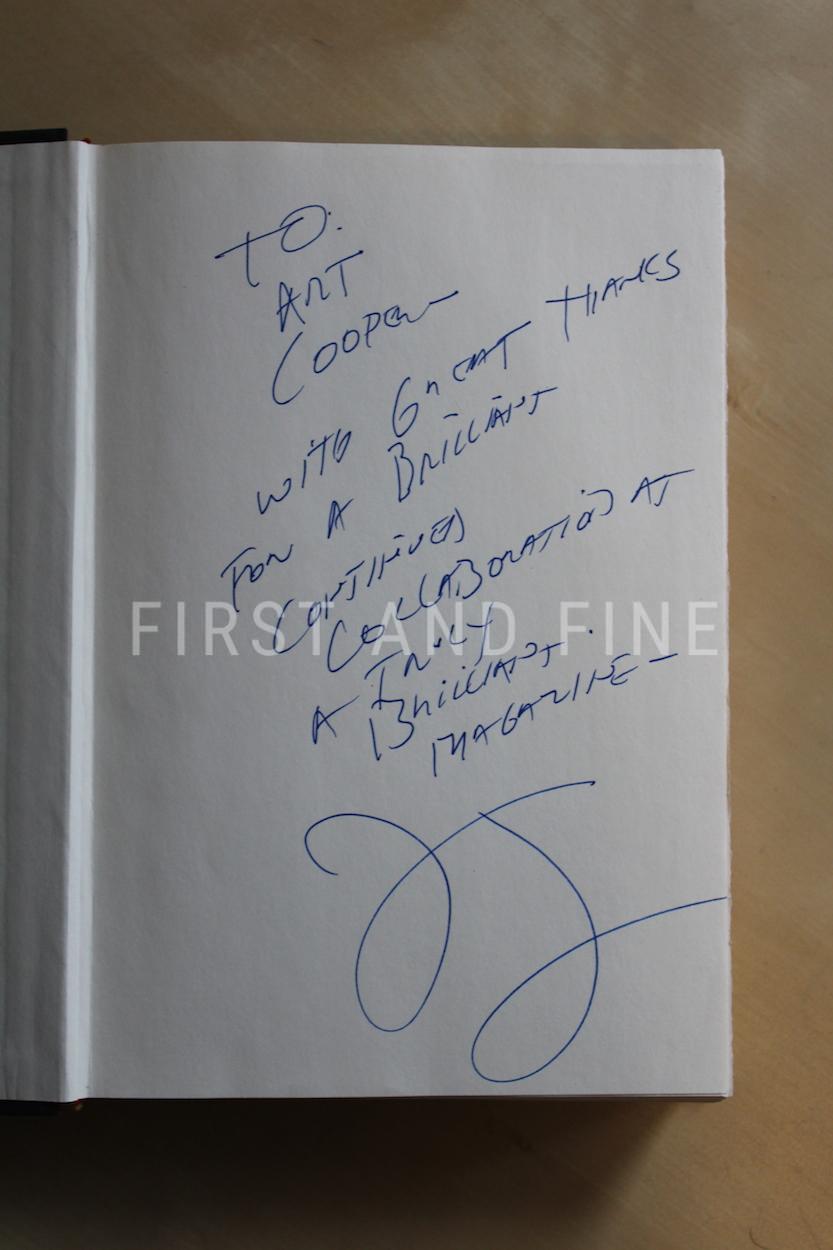 TO:
ART
COOPER
WITH GREAT THANKS
FOR A BRILLIANT
CONTINUED
COLLABORATION AT
A TRULY
BRILLIANT
MAGAZINE—
FIRST AND FINE